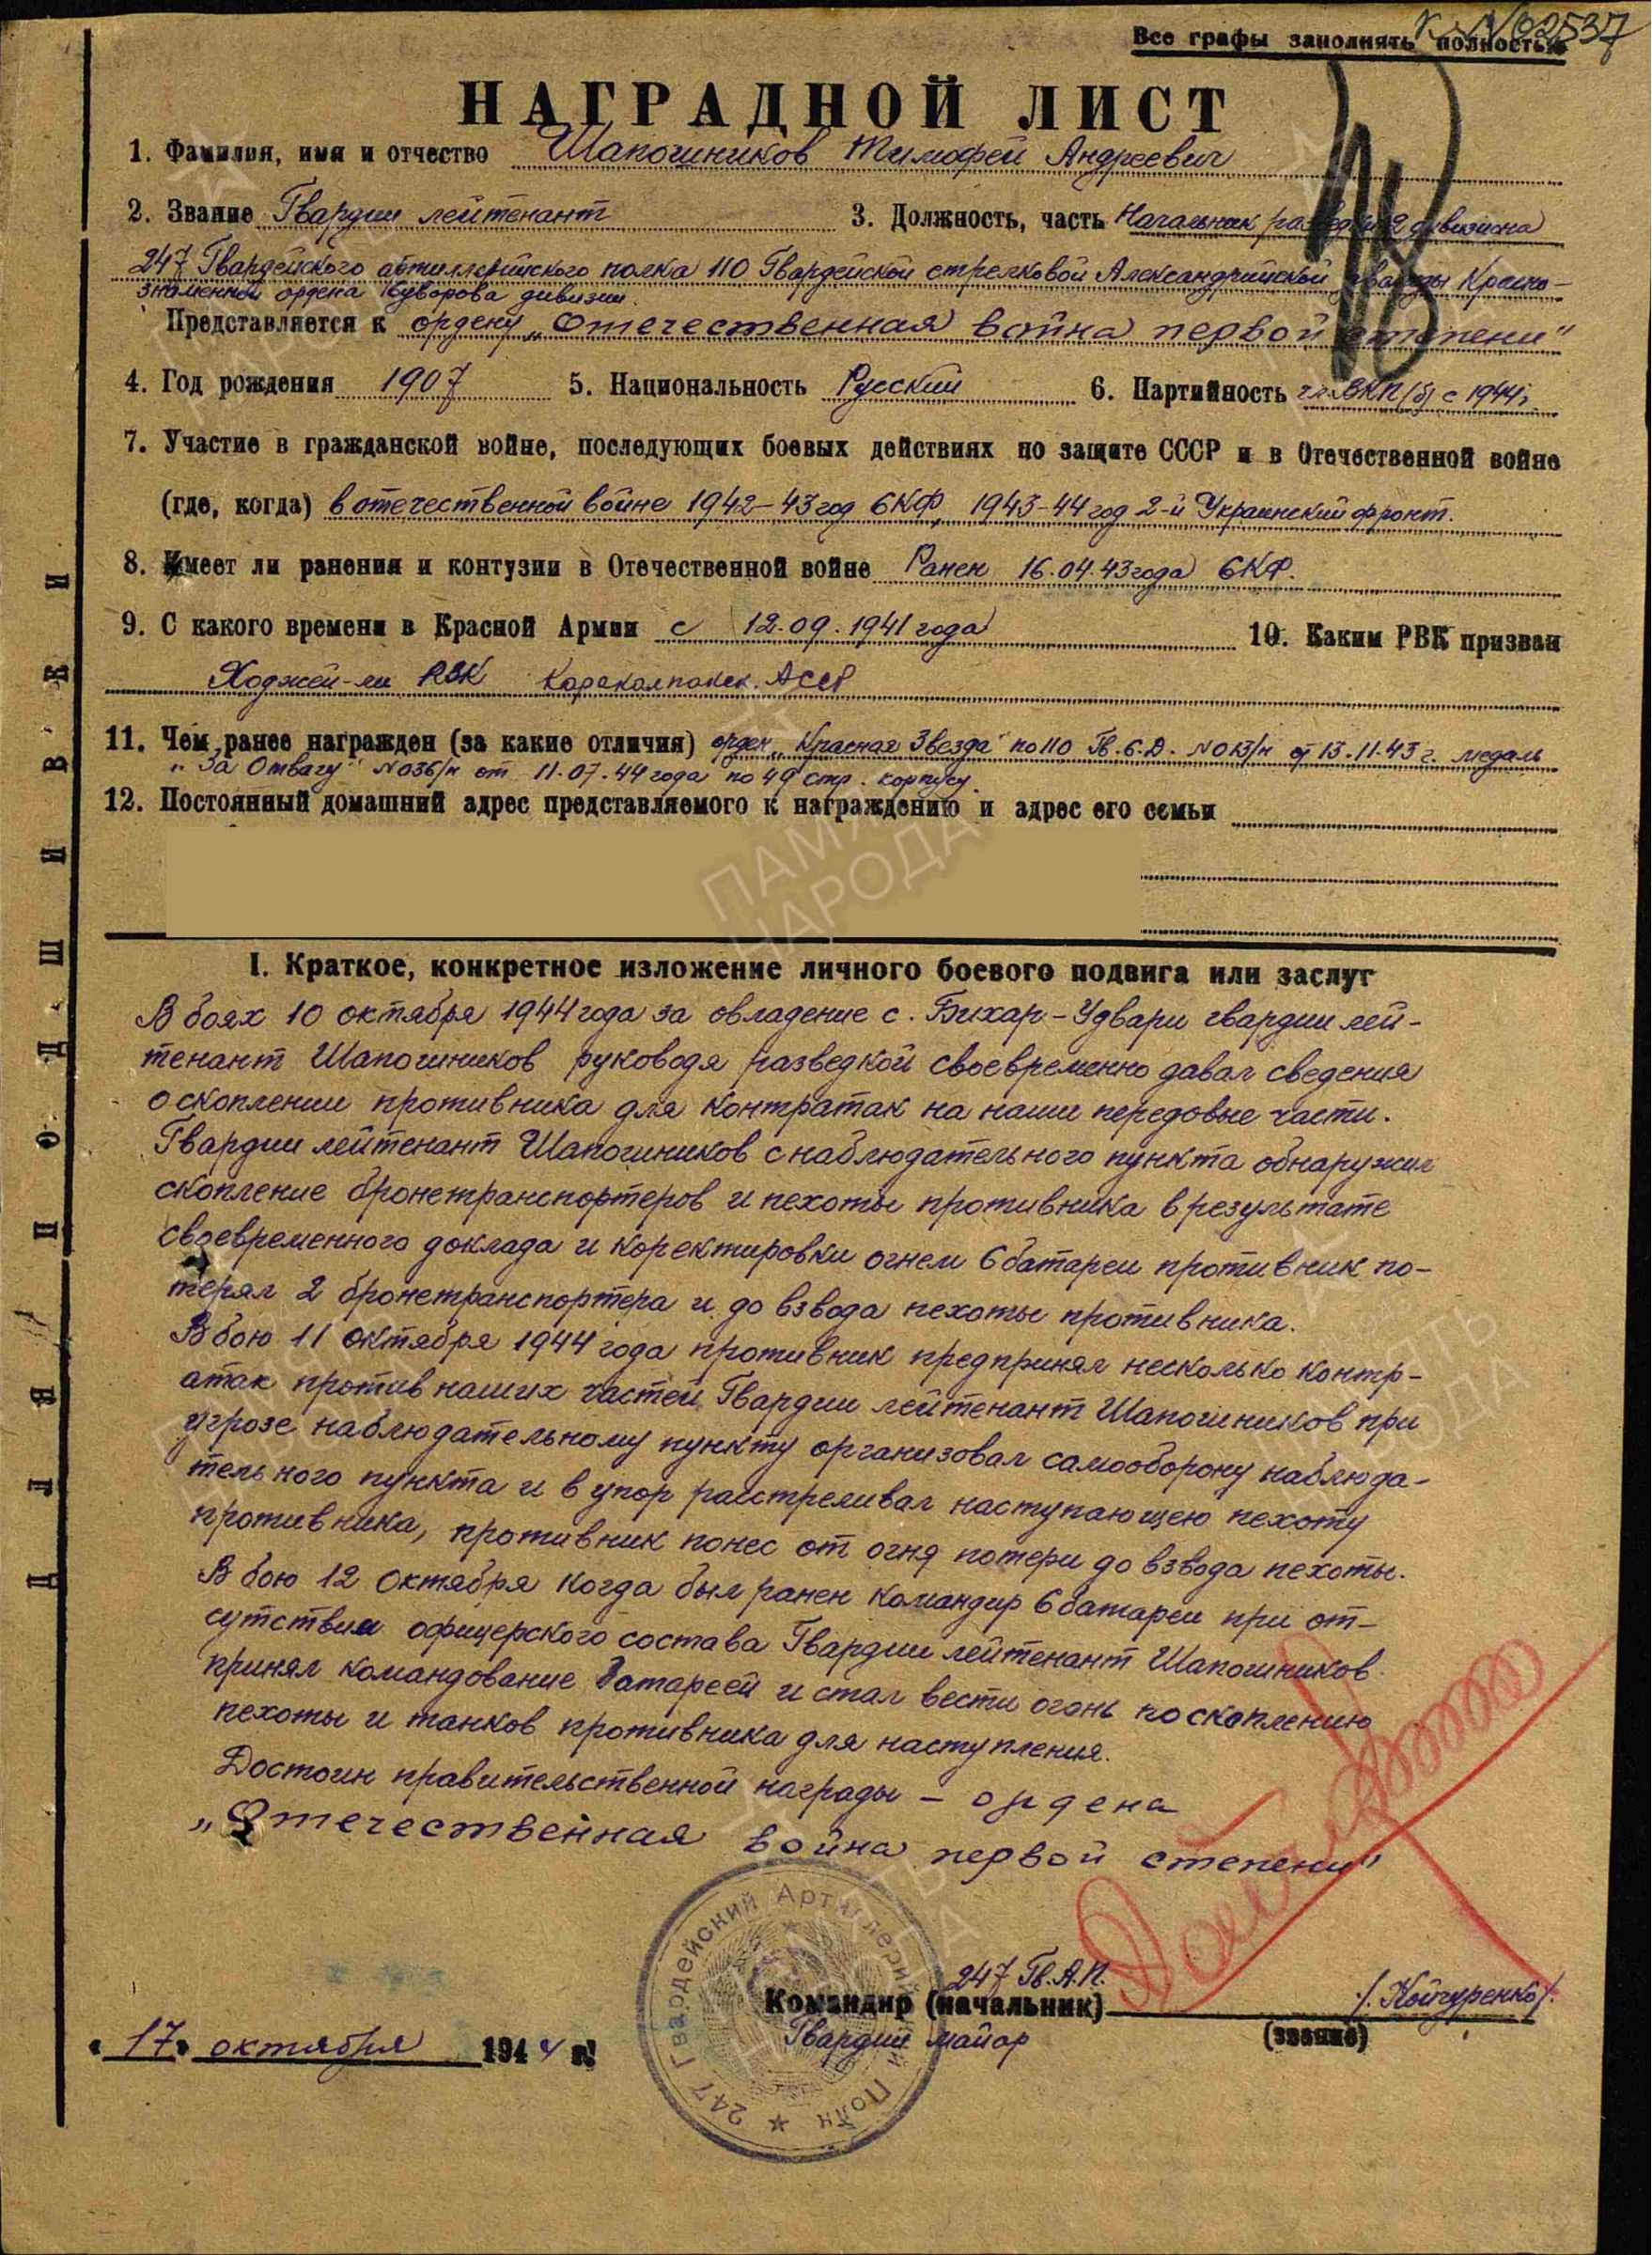 Все графы заполнять полностью
НАГРАДНОЙ ЛИСТ
1. Фамилия, имя и отчество Шапошников Тимофей Андреевич
2. Звание Гвардии лейтенант 3. Должность, часть Начальник разведки 2 дивизиона
247 Гвардейского артиллерийского полка 110 Гвардейской стрелковой Александрийской дважды Красно-
знаменной ордена Суворова дивизии.
Представляется к ордену „Отечественная война первой степени"
4. Год рождения 1907 5. Национальность Русский 6. Партийность чл. ВКП(б) с 1944г.
7. Участие в гражданской войне, последующих боевых действиях по защите СССР и в Отечественной войне
(где, когда) в отечественной войне 1942-43 год СКФ, 1943-44 год 2-й Украинский фронт.
8. Имеет ли ранения и контузии в Отечественной войне Ранен 16.04.43 года СКФ.
9. С какого времени в Красной Армии с 12.09.1941 года 10. Каким РВК призван
Ходжей-ли РВК Каракалпакск. АССР
11. Чем ранее награжден (за какие отличия) орден „Красная Звезда" по 110 Гв.С.Д. №013/н от 13.11.43 г. медаль
„За Отвагу" №036/н от 11.07.44 года по 49 стр. корпусу.
12. Постоянный домашний адрес представляемого к награждению и адрес его семьи
I. Краткое, конкретное изложение личного боевого подвига или заслуг
В боях 10 октября 1944 года за овладение с. Бихар-Удвари гвардии лей-
тенант Шапошников руководя разведкой своевременно давал сведения
о скоплении противника для контратак на наши передовые части.
Гвардии лейтенант Шапошников с наблюдательного пункта обнаружил
скопление бронетранспортеров и пехоты противника в результате
своевременного доклада и коректировки огнем 6 батареи противник по-
терял 2 бронетранспортера и до взвода пехоты противника.
В бою 11 октября 1944 года противник предпринял несколько контр-
атак против наших частей Гвардии лейтенант Шапошников при
угрозе наблюдательному пункту организовал самооборону наблюда-
тельного пункта и в упор расстреливал наступающею пехоту
противника, противник понес от огня потери до взвода пехоты.
В бою 12 октября когда был ранен командир 6 батареи при от-
сутствии офицерского состава Гвардии лейтенант Шапошников
принял командование батареей и стал вести огонь по скоплению
пехоты и танков противника для наступления.
Достоин правительственной награды – ордена
„Отечественная война первой степени"
247 Гв.А.П.
Командир (начальник) /. Койчуренко/.
Гвардии майор (звание)
„17" октября 1944 г.
247 Гвардейский Артиллерийский Полк
ДЛЯ ПОДШИВКИ
ПАМЯТЬ НАРОДА